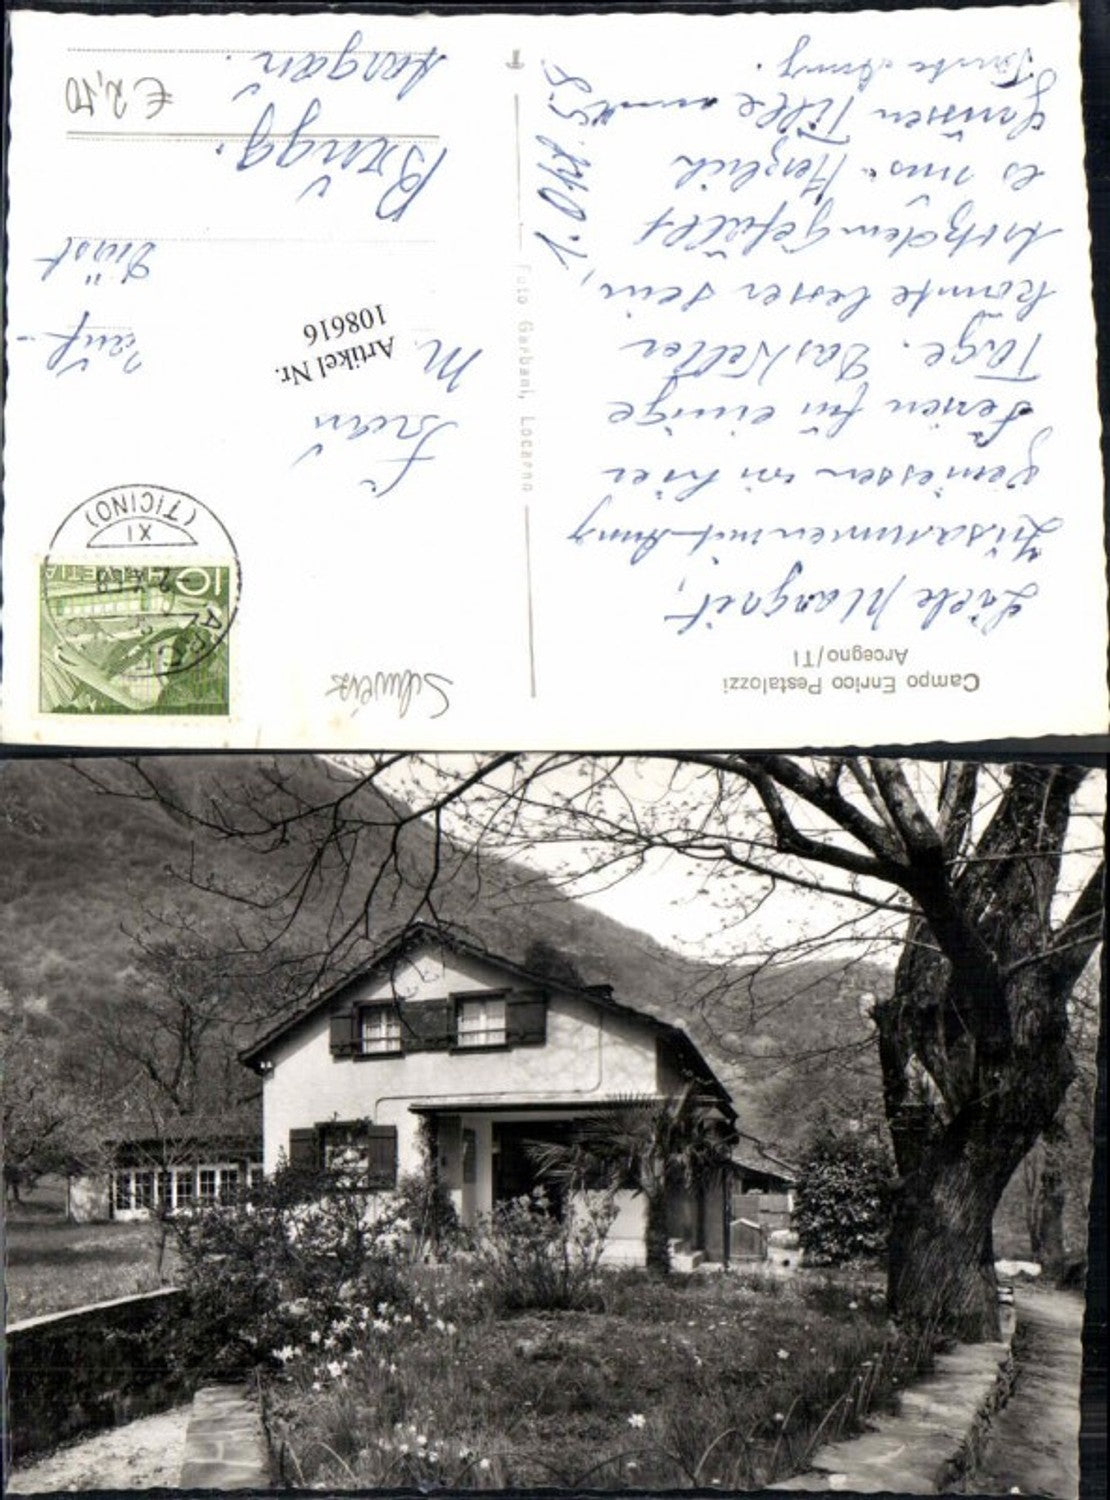 Campo Enrico Pestalozzi
Arcegno/TI
Liebe Margrit,
Zusammen mit Anny
geniessen wir hier
Ferien für einige
Tage. Das Wetter
könnte besser sein,
trotzdem gefällt
es uns. Herzlich
grüssen Tille und
Tante Anny.
1. Okt. 59.
Foto Garbani, Locarno
Schweiz
10
HELVETIA
(TICINO)
XI
Frau
M.
Artikel Nr.
108616
Brugg.
Aargau.
€ 2,50